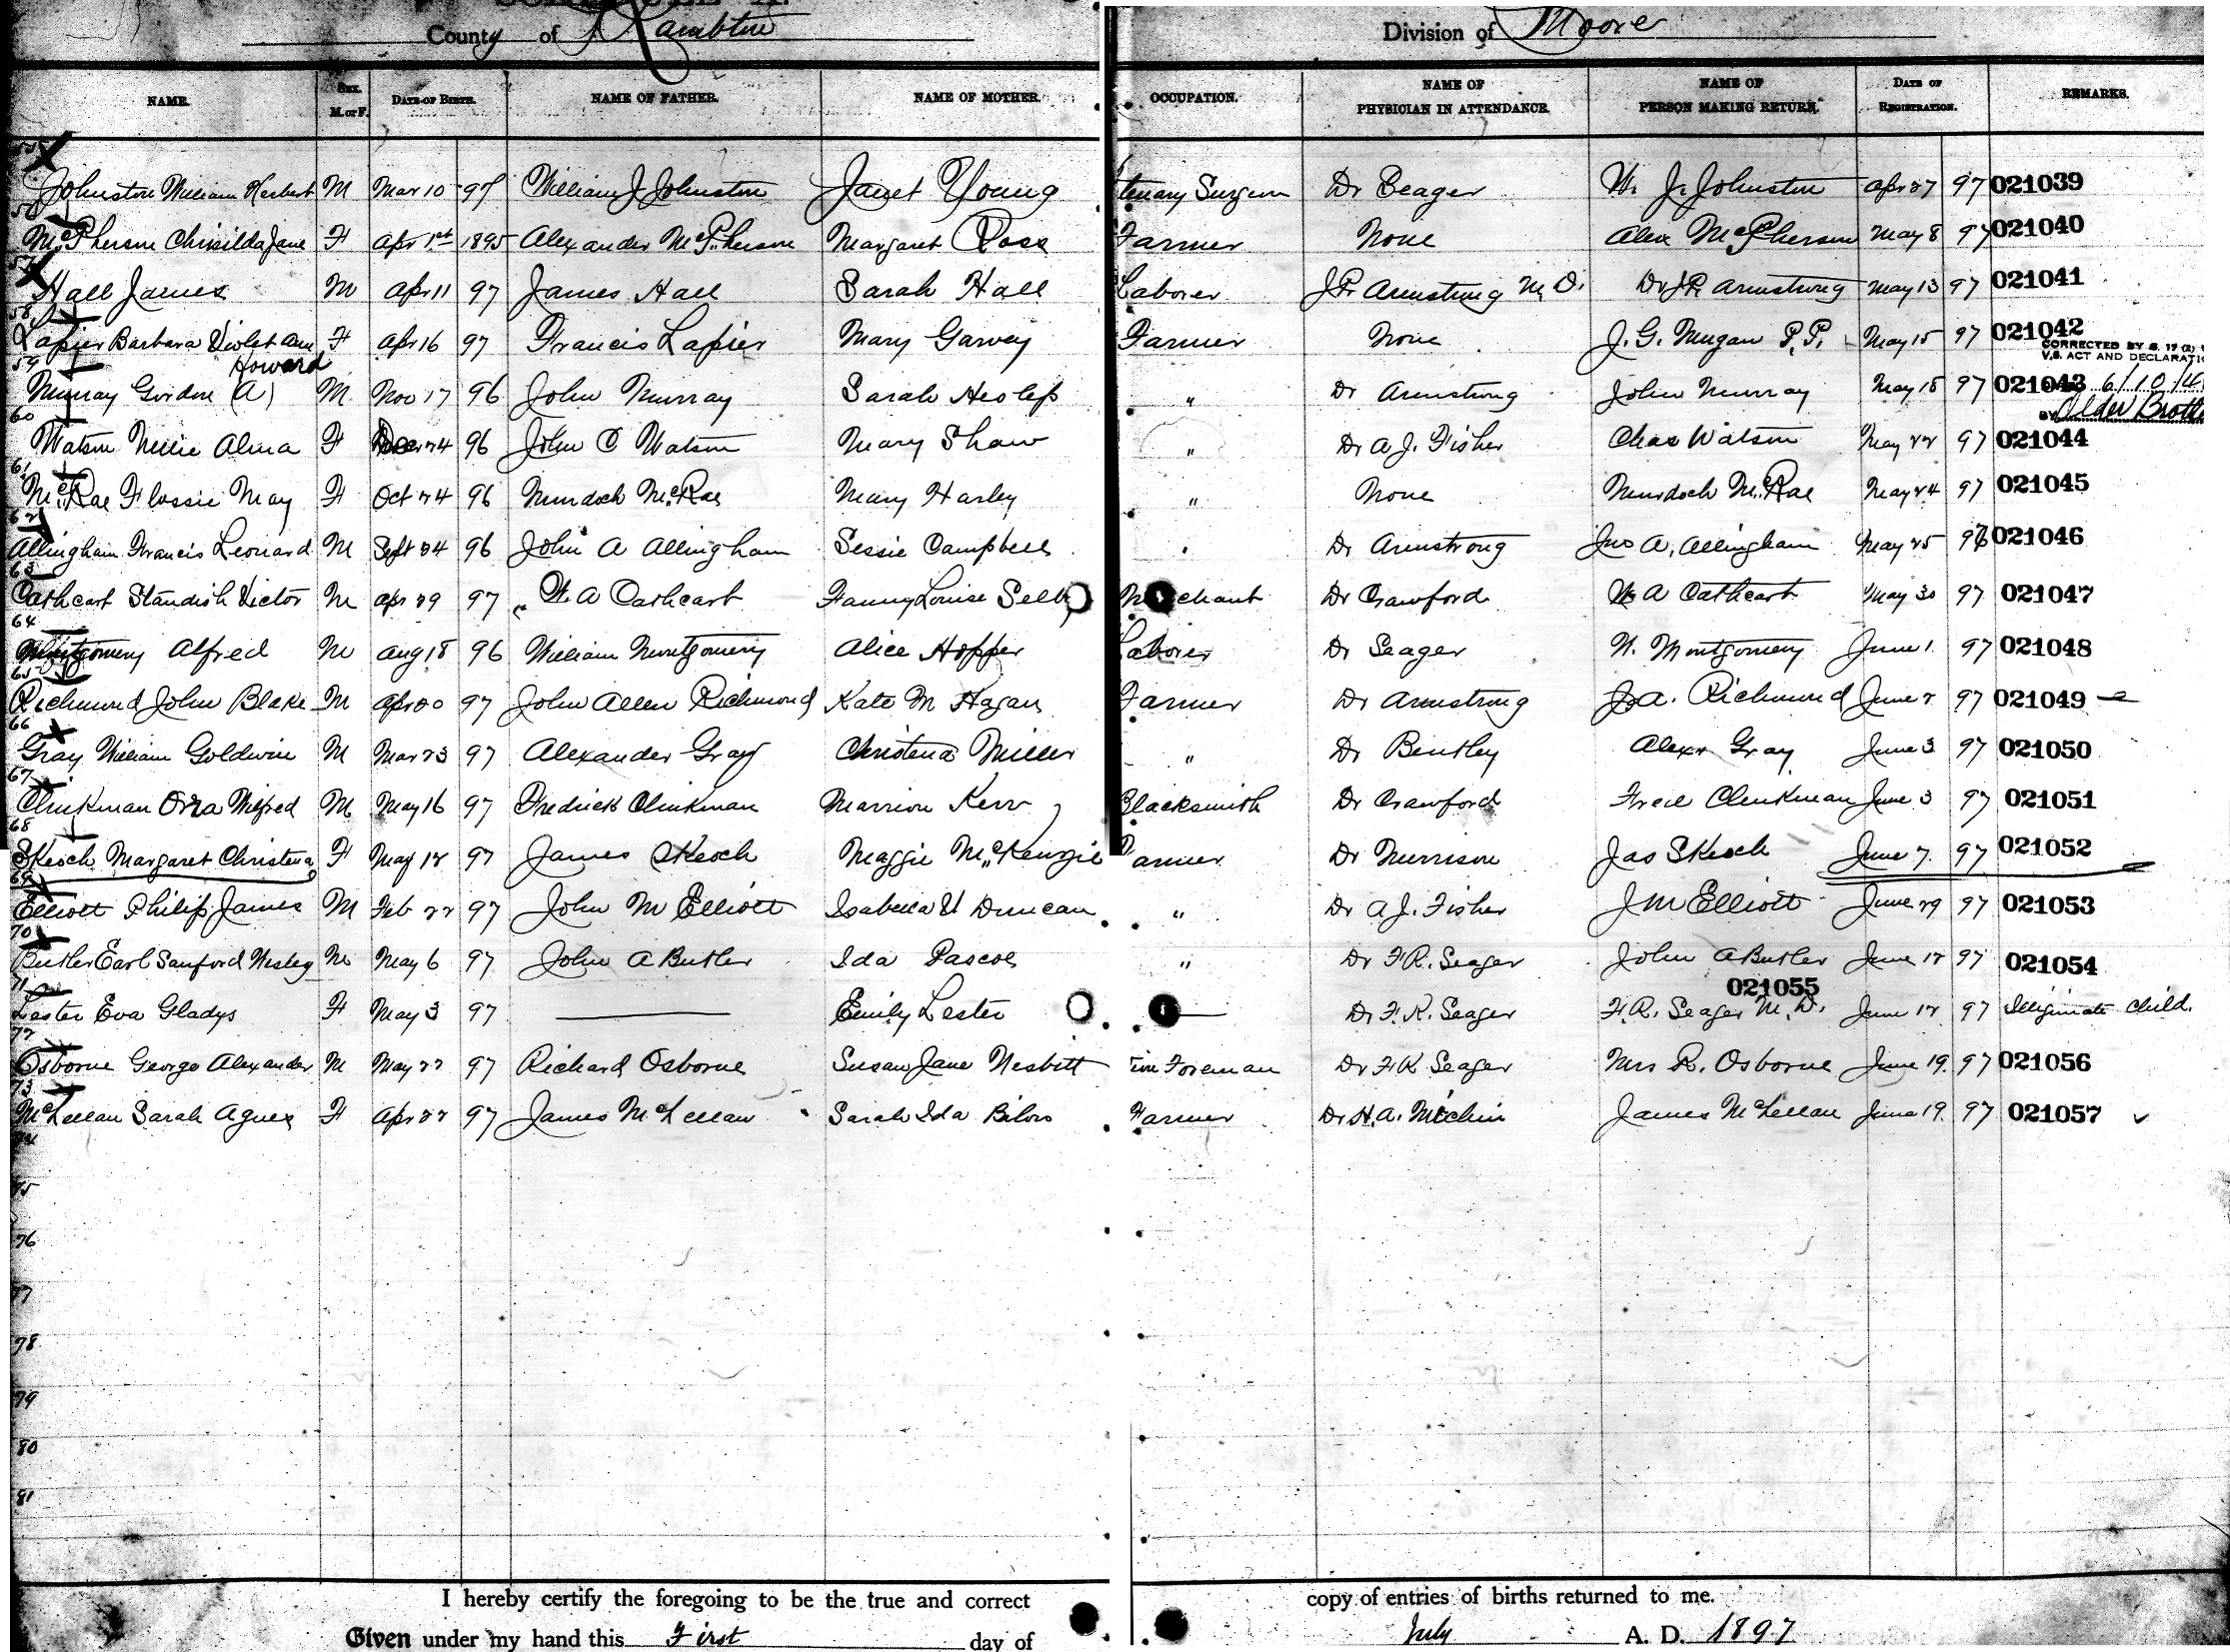 County of Lambton Division of Moore
NAME. SEX. M. or F. DATE OF BIRTH. NAME OF FATHER. NAME OF MOTHER. OCCUPATION. NAME OF PHYSICIAN IN ATTENDANCE. NAME OF PERSON MAKING RETURN. DATE OF REGISTRATION. REMARKS.
55
Johnston William Herbert M Mar 10 97 William J Johnston Janet Young Surgeon Dr Seager W. J. Johnston Apr 27 97 021039
56
McPherson Chrisilda Jane F Apr 1st 1895 Alexander McPherson Margaret Ross Farmer None Alex McPherson May 8 97 021040
57
Hall James M Apr 11 97 James Hall Sarah Hall Laborer J.P. Armstrong M.D. Dr J.P. Armstrong May 13 97 021041
58
Lapier Barbara Violet Ann F Apr 16 97 Francis Lapier Mary Garvey Farmer None J. G. Mugan P.P. May 15 97 021042
CORRECTED BY S. 17 (2)
V.S. ACT AND DECLARATI
59 Howard
Murray Gordon (A) M Nov 17 96 John Murray Sarah Heslep " Dr Armstrong John Murray May 18 97 021043 6/10/4
BY Older Broth
60
Watson Nellie Alma F Dec 24 96 John C Watson Mary Shaw " Dr A. J. Fisher Chas Watson May 22 97 021044
61
McRae Flossie May F Oct 24 96 Murdoch McRae Mary Harley " None Murdoch McRae May 24 97 021045
62
Allingham Francis Leonard M Sept 24 96 John A Allingham Jessie Campbell " Dr Armstrong Jno A. Allingham May 25 97 021046
63
Cathcart Standish Victor M Apr 29 97 W. A Cathcart Fanny Louise Selby Merchant Dr Crawford W A Cathcart May 30 97 021047
64
Montgomery Alfred M Aug 18 96 William Montgomery Alice Hopper Laborer Dr Seager W. Montgomery June 1 97 021048
65
Richmond John Blake M Apr 20 97 John Allen Richmond Kate M Hagan Farmer Dr Armstrong J. A. Richmond June 2 97 021049
66
Gray William Goldwin M Mar 23 97 Alexander Gray Christena Miller " Dr Bentley Alexr Gray June 3 97 021050
67
Clinkman Orra Wilfred M May 16 97 Fredrick Clinkman Marrion Kerr Blacksmith Dr Crawford Fred Clinkman June 3 97 021051
68
Skeoch Margaret Christena F May 12 97 James Skeoch Maggie McKenzie Farmer Dr Morrison Jas Skeoch June 7 97 021052
69
Elliott Philip James M Feb 22 97 John M Elliott Isabella Duncan " Dr A J. Fisher J M Elliott June 97 021053
70
Butler Earl Sanford Wesley M May 6 97 John A Butler Ida Pascoe " Dr F.R. Seager John A Butler June 12 97 021054
71 021055
Lester Eva Gladys F May 3 97 Emily Lester Dr F. R. Seager F. R. Seager M.D. June 12 97 Illigimate Child.
72
Osborne George Alexander M May 22 97 Richard Osborne Susan Jane Nesbitt Foreman Dr F R Seager Mrs R. Osborne June 19 97 021056
73
McLellan Sarah Agnes F Apr 22 97 James McLellan Sarah Ida Farmer Dr H. A. Mechin James McLellan June 19 97 021057
74
75
76
77
78
79
80
81
I hereby certify the foregoing to be the true and correct copy of entries of births returned to me.
Given under my hand this First day of July A. D. 1897